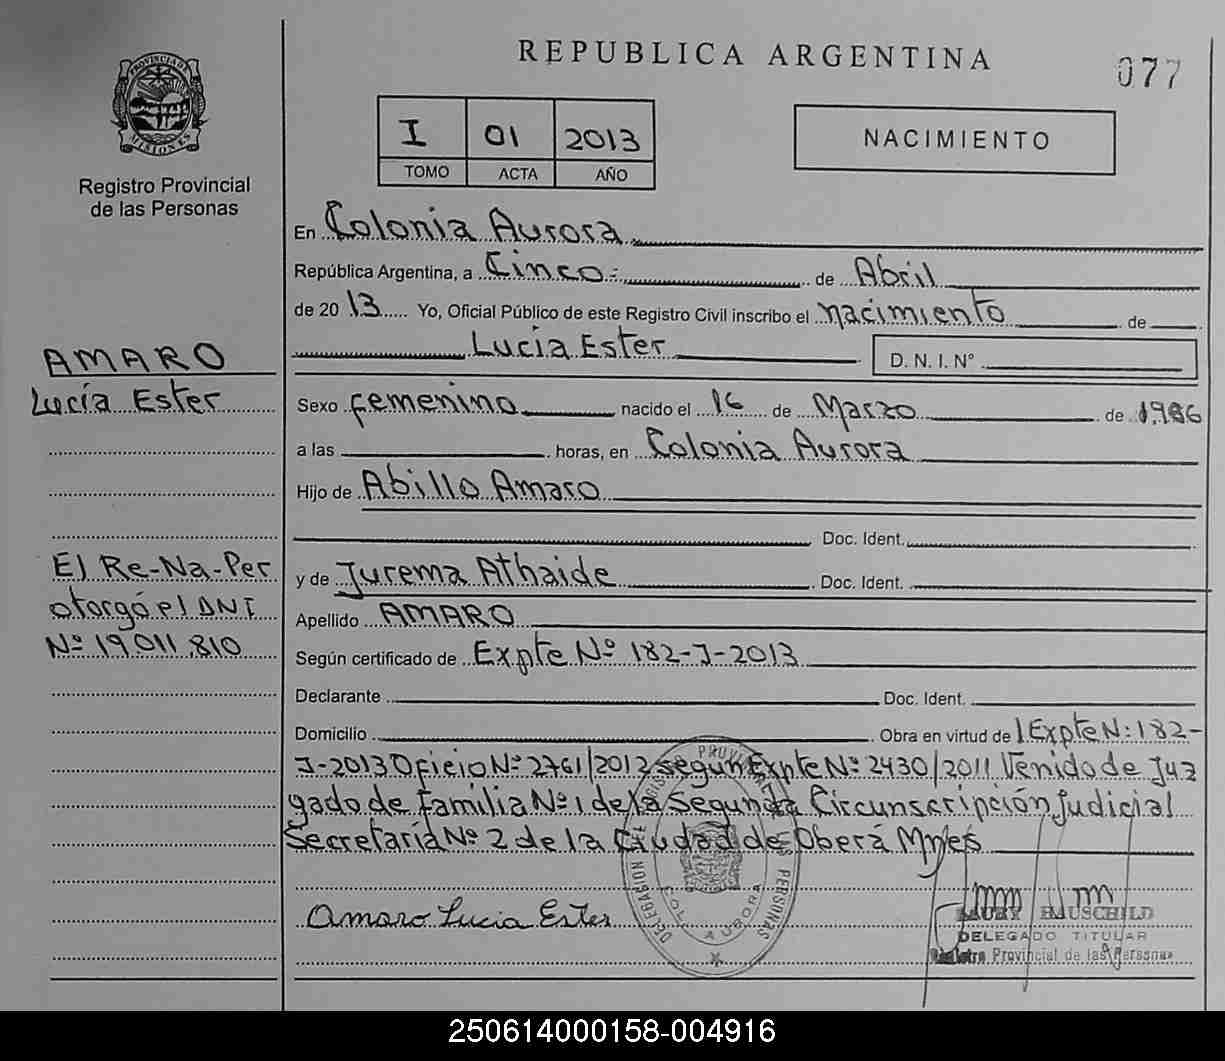 REPUBLICA ARGENTINA
077
PROVINCIA DE
MISIONES
Registro Provincial
de las Personas
I 01 2013
TOMO ACTA AÑO
NACIMIENTO
En Colonia Aurora
República Argentina, a Cinco de Abril
de 2013 Yo, Oficial Público de este Registro Civil inscribo el nacimiento de
Lucía Ester D. N. I. N°
AMARO
Lucía Ester
Sexo femenino nacido el 16 de Marzo de 1986
a las horas, en Colonia Aurora
Hijo de Abillo Amaro
Doc. Ident.
El Re-Na-Per
otorgó el DNI
Nº 19.011.810
y de Jurema Athaide Doc. Ident.
Apellido AMARO
Según certificado de Expte Nº 182-J-2013
Declarante Doc. Ident.
Domicilio Obra en virtud de l Expte N: 182-
J-2013 Oficio Nº 2761/2012 según Expte Nº 2430/2011 Venido de Juz
gado de Familia Nº 1 de la Segunda Circunscripción Judicial
Secretaría Nº 2 de la Ciudad de Oberá Mnes
Amaro Lucia Ester
DELEGACION DEL REGISTRO PROVINCIAL DE LAS PERSONAS
COL. AURORA
HAUSCHILD
DELEGADO TITULAR
Registro Provincial de las Personas
250614000158-004916